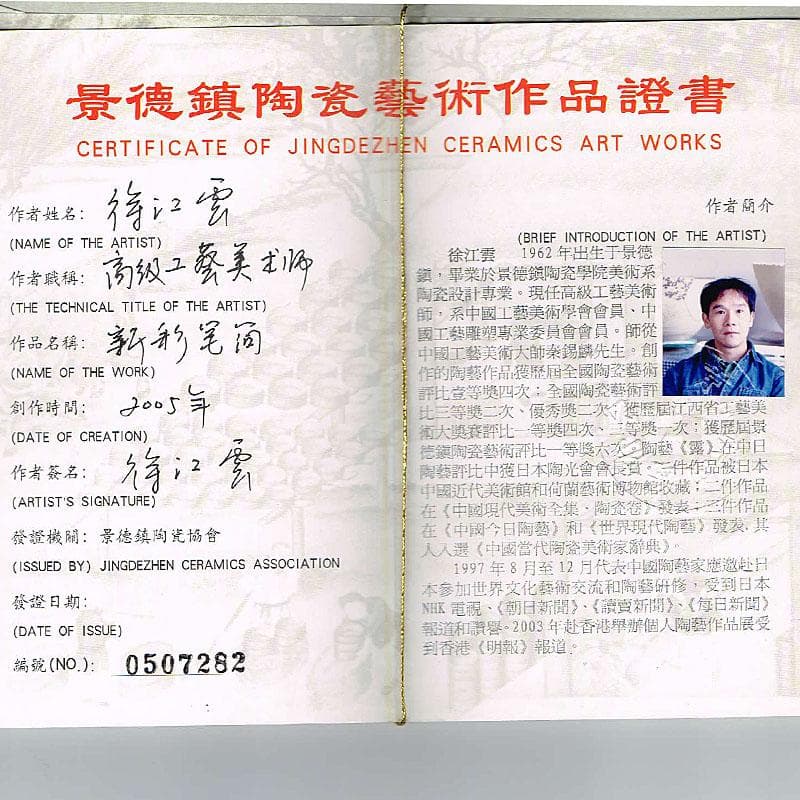 景德鎮陶瓷藝術作品證書
CERTIFICATE OF JINGDEZHEN CERAMICS ART WORKS
作者姓名: 徐江雲
(NAME OF THE ARTIST)
作者職稱: 高级工藝美术师
(THE TECHNICAL TITLE OF THE ARTIST)
作品名稱: 新彩笔筒
(NAME OF THE WORK)
創作時間: 2005年
(DATE OF CREATION)
作者簽名: 徐江雲
(ARTIST'S SIGNATURE)
發證機關: 景德鎮陶瓷協會
(ISSUED BY) JINGDEZHEN CERAMICS ASSOCIATION
發證日期:
(DATE OF ISSUE)
編號(NO.): 0507282
作者簡介
(BRIEF INTRODUCTION OF THE ARTIST)
徐江雲 1962年出生于景德
鎮，畢業於景德鎮陶瓷學院美術系
陶瓷設計專業。現任高級工藝美術
師，系中國工藝美術學會會員、中
國工藝雕塑專業委員會會員。師從
中國工藝美術大師秦錫麟先生。創
作的陶藝作品獲歷屆全國陶瓷藝術
評比壹等獎四次；全國陶瓷藝術評
比三等獎二次、優秀獎二次；獲歷屆江西省工藝美
術大獎賽評比一等獎四次、二等獎一次；獲歷屆景
德鎮陶瓷藝術評比一等獎六次。陶藝《露》在中日
陶藝評比中獲日本陶光會會長賞。二件作品被日本
中國近代美術館和荷蘭藝術博物館收藏；二件作品
在《中國現代美術全集、陶瓷卷》發表；三件作品
在《中國今日陶藝》和《世界現代陶藝》發表。其
人入選《中國當代陶瓷美術家辭典》。
1997年8月至12月代表中國陶藝家應邀赴日
本參加世界文化藝術交流和陶藝研修，受到日本
NHK電視、《朝日新聞》、《讀賣新聞》、《每日新聞》
報道和讚譽。2003年赴香港舉辦個人陶藝作品展受
到香港《明報》報道。